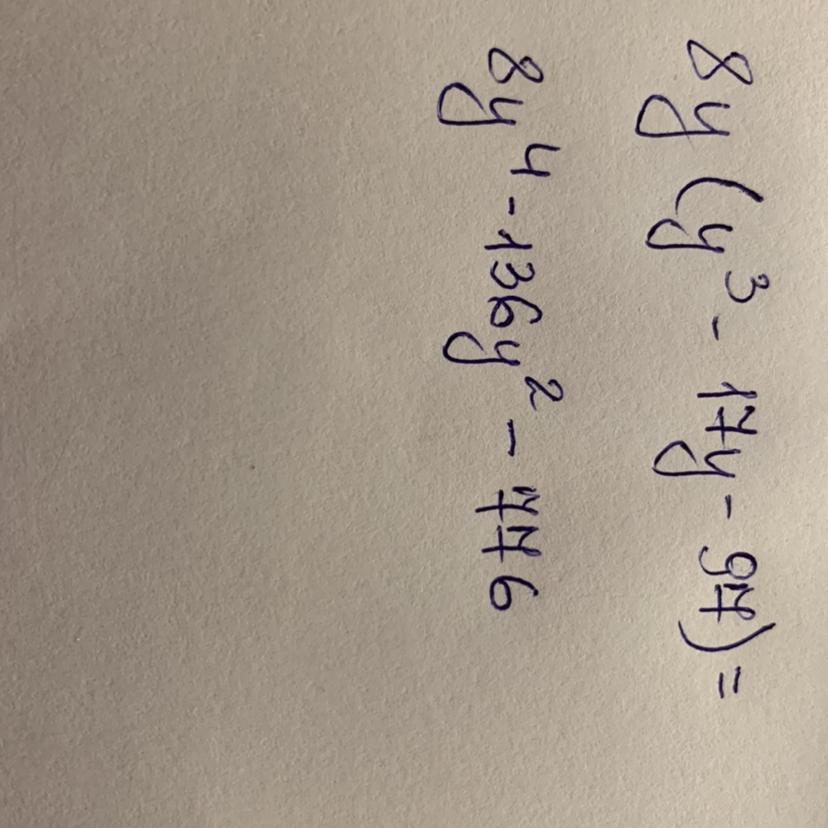 8y(y³ - 17y - 97) =
8y⁴ - 136y² - 776